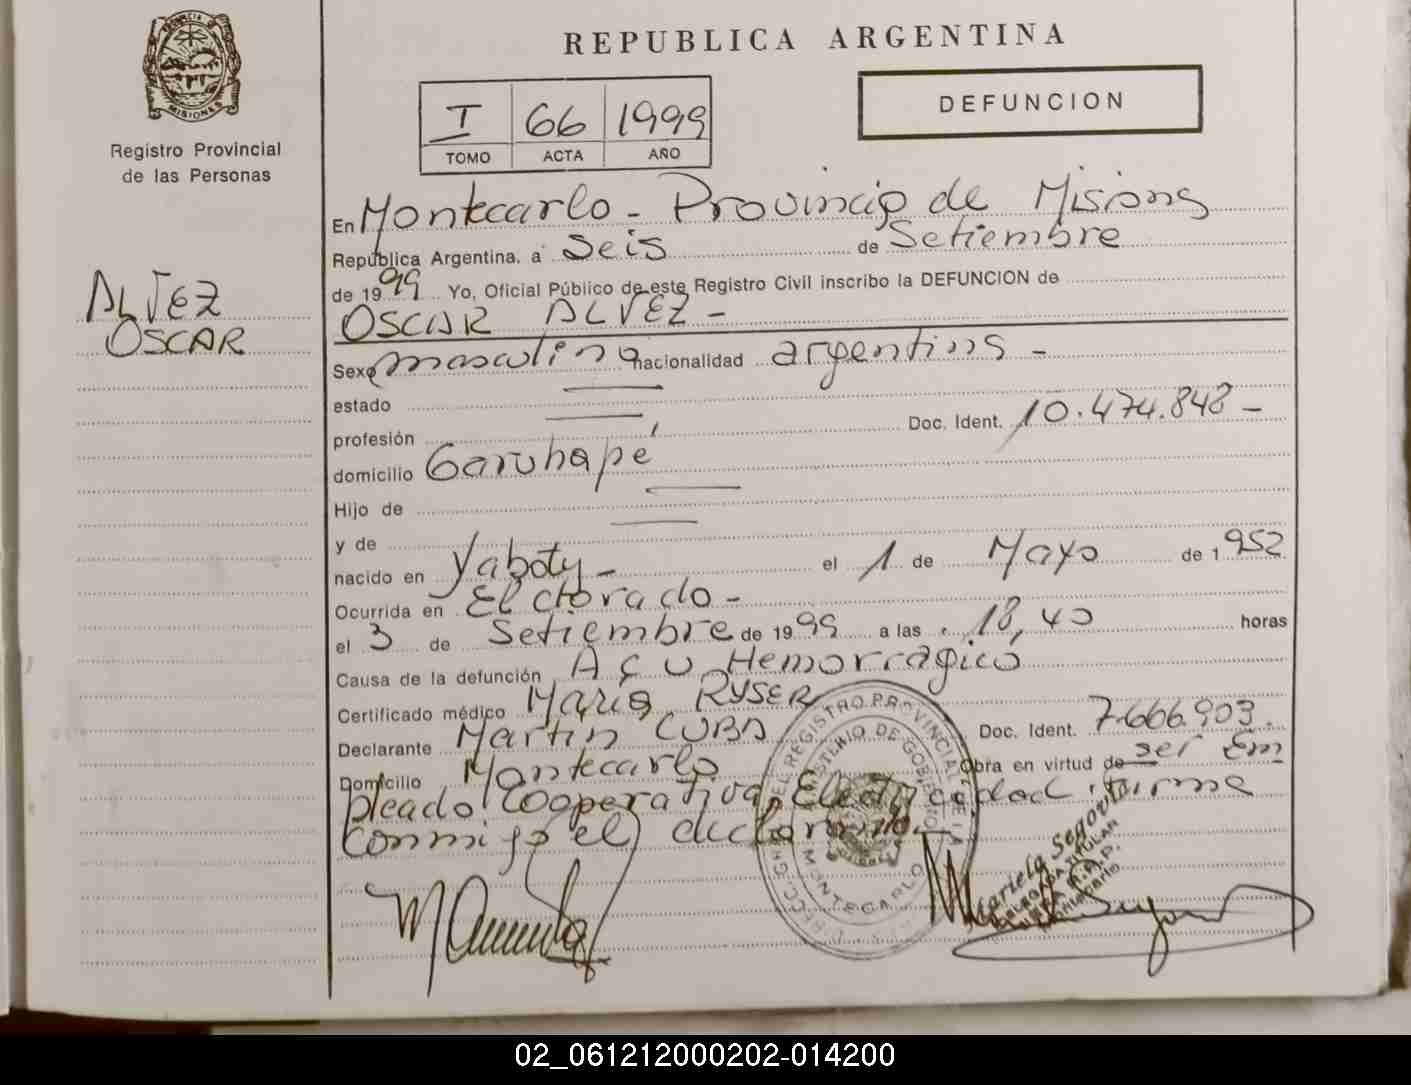 REPUBLICA ARGENTINA
PROVINCIA DE MISIONES
Registro Provincial
de las Personas
I 66 1999
TOMO ACTA AÑO
DEFUNCION
ALVEZ
OSCAR
En Montecarlo - Provincia de Misiones
República Argentina, a Seis de Setiembre
de 1999 Yo, Oficial Público de este Registro Civil inscribo la DEFUNCION de
OSCAR ALVEZ -
Sexo masculino nacionalidad argentina -
estado
profesión Doc. Ident. 10.474.848 -
domicilio Garuhapé
Hijo de
y de
nacido en Yaboty - el 1 de Mayo de 1952
Ocurrida en Eldorado -
el 3 de Setiembre de 1999 a las 18,40 horas
Causa de la defunción Hemorragico
Certificado médico María RYSER
Declarante Martin CUBA Doc. Ident. 7.666.903.
Domicilio Montecarlo Obra en virtud de ser Em
pleado Cooperativa Electricidad firma
conmigo el declarante.-
REGISTRO PROVINCIAL DE LA
MINISTERIO DE GOBIERNO
MONTECARLO
Mariela Segovia
DELEGADA TITULAR
02_061212000202-014200